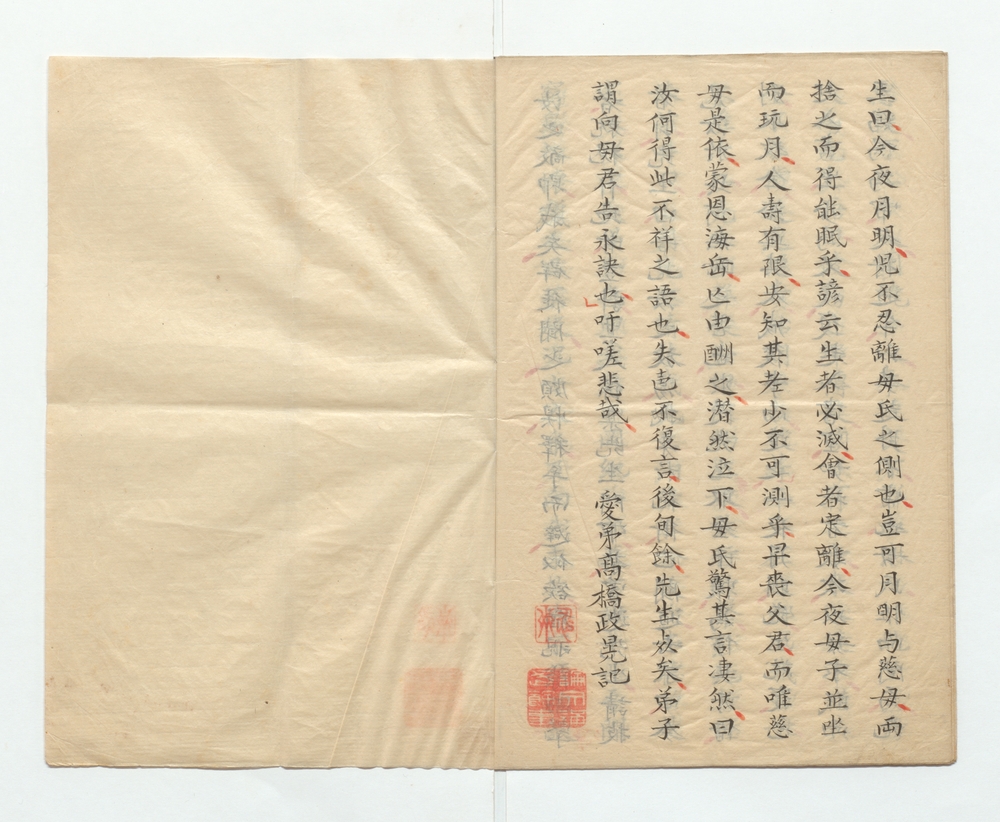 生曰今夜月明児不忍離毋氏之側也豈可月明与慈毋両
捨之而得能眠乎諺云生者必滅會者定離今夜毋子並坐
而玩月人壽有限安知其老少不可測乎早喪父君而唯慈
毋是依蒙恩海岳亡由酬之潜然泣下毋氏驚其言凄然曰
汝何得此不祥之語也失色不復言後旬餘先生歿矣弟子
謂向毋君告永訣也吁嗟悲哉　愛弟髙橋政晃記